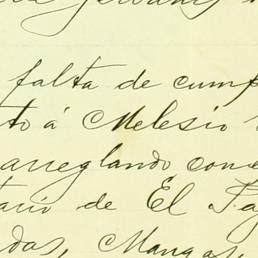 falta de cump
to á Melesio
arreglando con e
tario de El Pa
das, Mangas,